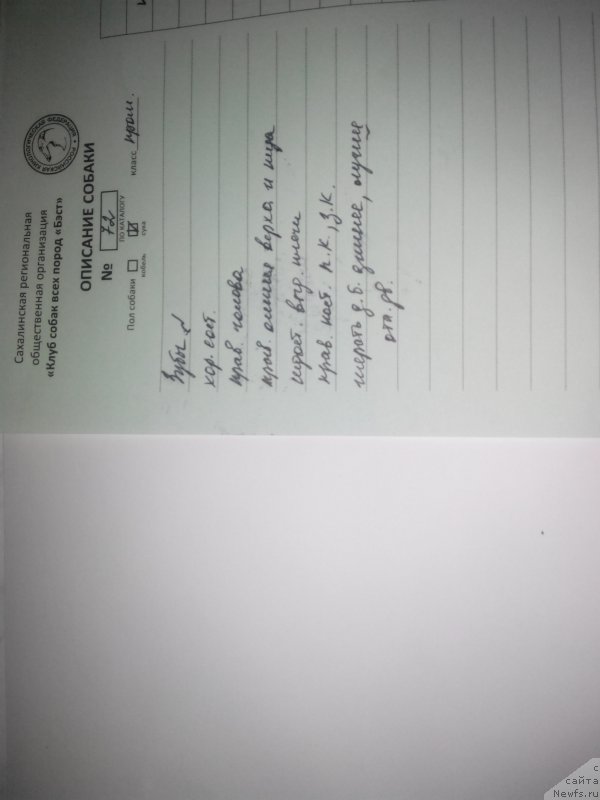 Сахалинская региональная
общественная организация
«Клуб собак всех пород «Бэст»
РОССИЙСКАЯ КИНОЛОГИЧЕСКАЯ ФЕДЕРАЦИЯ
ОПИСАНИЕ СОБАКИ
№ 72
ПО КАТАЛОГУ
Пол собаки
кобель
сука
класс пром.
Зубы
хор. сост.
прав. голова
прав. линия верха и низа
прав. пост. п.к., з.к.
шерсть д.б. длинее, лучше
отл. дв.
с
сайта
Newfs.ru